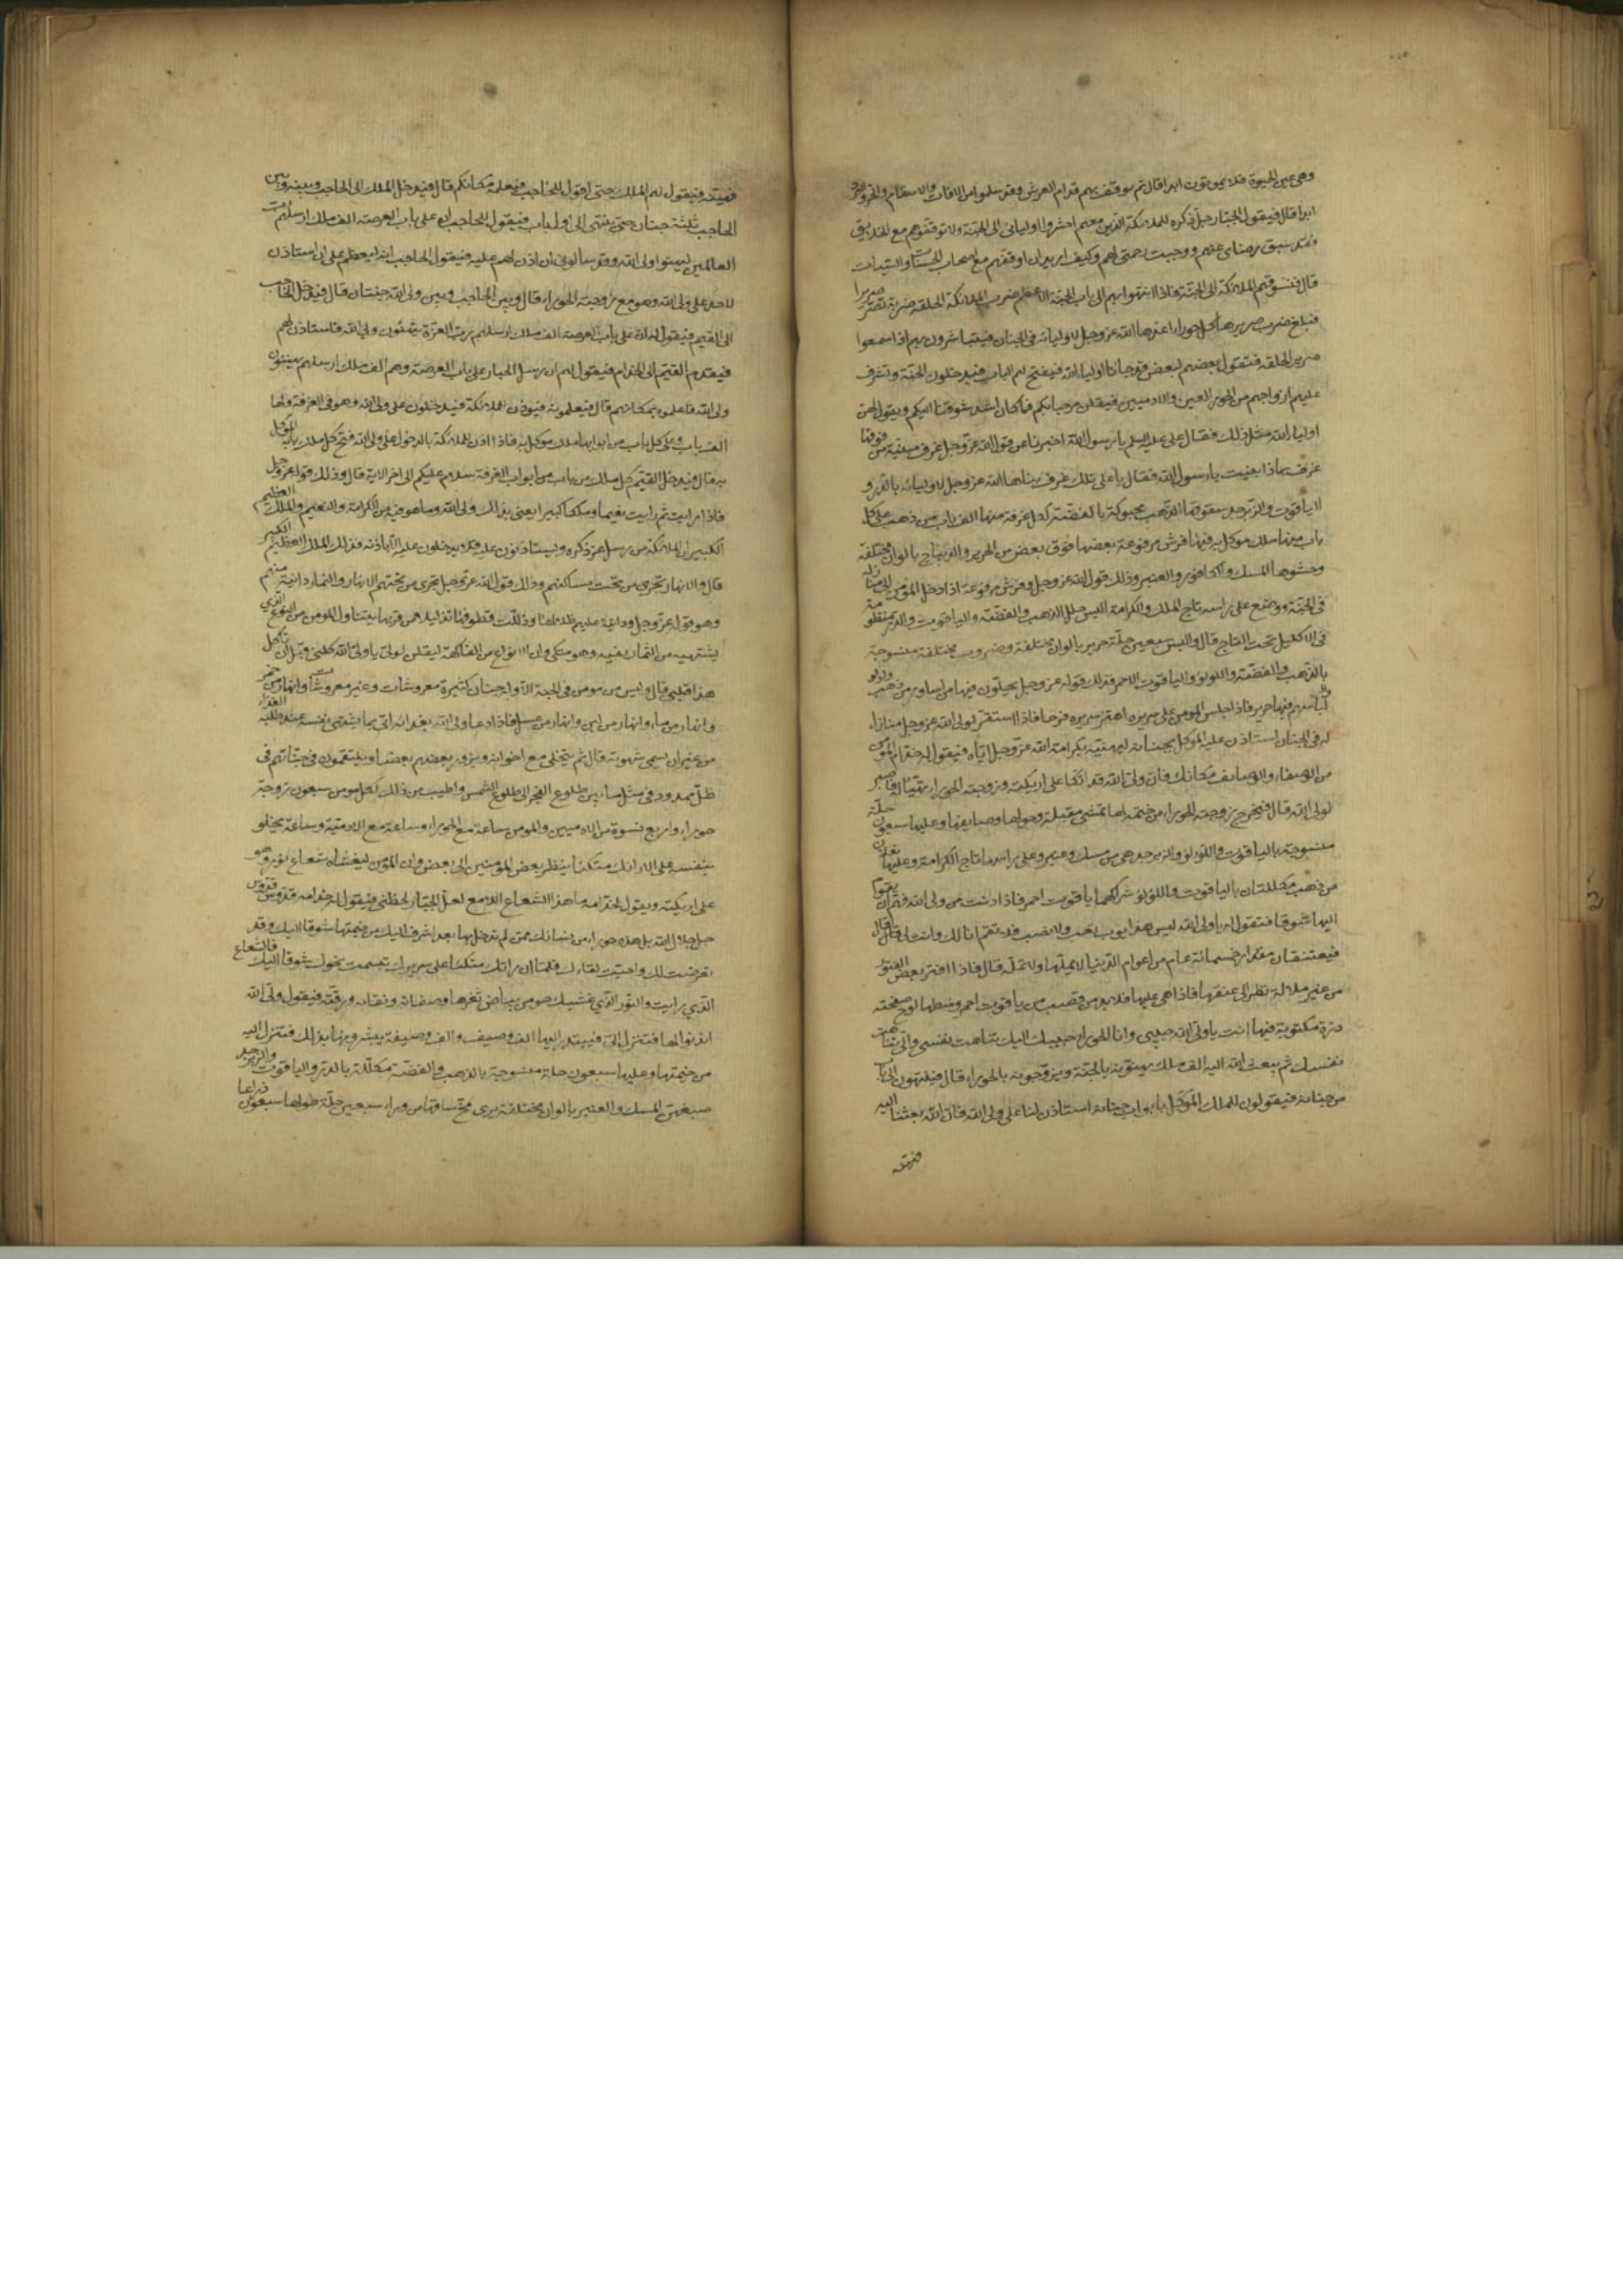 وهى عين الحيوة فلا يموتون ابدا قال ثم يوقف بهم قدام العرش وقد سلموا من الافات والاسقام والحر والبرد
ابدا قال فيقول الجبار جل ذكره للملائكة الذين معهم احشروا اوليائى الى الجنة ولا توقفوهم مع الخلايق
فقد سبق رضاى عنهم ووجبت رحمتى لهم وكيف اريد ان اوقفهم مع اصحاب الحسنات والسيئات
قال فتسوقهم الملائكة الى الجنة فاذا انتهوا بهم الى باب الجنة الاعظم ضرب الملائكة الحلقة ضربة تصر صريرا
فيبلغ صوت صريرها كل حوراء اعدها الله عز وجل لاوليائه فى الجنان فيتباشرون بهم اذا سمعوا
صرير الحلقه فتقول بعضهم لبعض قد جاءنا اولياء الله فيفتح لهم الباب فيدخلون الجنة وتشرف
عليهم ازواجهم من الحور العين والادميين فيقلن مرحبا بكم فما كان اشد شوقنا اليكم ويقول لهن
اولياء الله مثل ذلك فقال على عليه السلم يا رسول الله اخبرنا عن قول الله عز وجل غرف مبنية من فوقها
غرف بماذا بنيت يا رسول الله فقال يا على تلك غرف بناها الله عز وجل لاوليائه بالدر و
الياقوت والزبرجد سقوفها الذهب محبوكة بالفضة لكل غرفة منها الف باب من ذهب على كل
باب منها ملك موكل به فيها فرش مرفوعة بعضها فوق بعض من الحرير والديباج بالوان مختلفة
وحشوها المسك والكافور والعنبر وذلك قول الله عز وجل وفرش مرفوعة اذا ادخل المؤمن الى منازله
فى الجنة ووضع على راسه تاج الملك والكرامة البس حلل الذهب والفضة والياقوت والدر منظومة
فى الاكليل تحت التاج قال والبس سبعين حلة حرير بالوان مختلفة وضروب مختلفة منسوجة
بالذهب والفضة واللؤلؤ والياقوت الاحمر فذلك قوله عز وجل يحلون فيها من اساور من ذهب ولؤلؤ
ولباسهم فيها حرير فاذا جلس المومن على سريره اهتز سريره فرحا فاذا استقر لولى الله عز وجل منازله
له فى الجنان استاذن عليه الموكل بجنانه ليهنيه بكرامة الله عز وجل اياه فيقول له خدام المؤمن
من الوصفاء والوصايف مكانك فان ولى الله قد اتكا على اريكته وزوجته الحوراء تهيا له فاصبر
لولى الله قال فتخرج زوجته الحوراء من خيمة لها تمشى مقبلة وحولها وصايفها وعليها سبعون حلة
منسوجة بالياقوت واللؤلؤ والزبرجد هى من مسك وعنبر وعلى راسها تاج الكرامة وعليها نعلان
من ذهب مكللتان بالياقوت واللؤلؤ شراكهما ياقوت احمر فاذا دنت من ولى الله فهم ان يقوم
اليها شوقا فتقول له يا ولى الله ليس هذا يوم تعب ولا نصب فلا تقم انا لك وانت لى قال
فيعتنقان مقدار خمسمائة عام من اعوام الدنيا لا يملها ولا تمله قال فاذا افتر بعض الفتور
من غير ملالة نظر الى عنقها فاذا عليها قلايد من قصب من ياقوت احمر وسطها لوح صفحته
درة مكتوب فيها انت يا ولى الله حبيبى وانا الحوراء حبيبتك اليك تناهت نفسى والى تناهت
نفسك ثم يبعث الله اليه الف ملك يهنؤنه بالجنة ويزوجونه بالحوراء قال فينتهون الى اول باب
من جنانه فيقولون للملك الموكل بابواب جنانه استاذن لنا على ولى الله فان الله بعثنا اليه
فهنئه فيقول لهم الملك حتى اقول للحاجب فيعلمه مكانكم قال فيدخل الملك الى الحاجب وبينه وبين
الحاجب ثلثة جنان حتى ينتهى الى اول باب فيقول للحاجب ان على باب العرصة الف ملك ارسلهم رب
العالمين ليهنوا ولى الله وقد سالونى ان اذن لهم عليه فيقول الحاجب انه ليعظم على ان استاذن
لاحد على ولى الله وهو مع زوجته الحوراء قال وبين الحاجب وبين ولى الله جنتان قال فيدخل الحاجب
الى القيم فيقول له ان على باب العرصة الف ملك ارسلهم رب العزة يهنئون ولى الله فاستاذن لهم
فيقدم القيم الى الخدام فيقول لهم ان رسل الجبار على باب العرصة وهم الف ملك ارسلهم يهنئون
ولى الله فاعلموه بمكانهم قال فيعلمونه فيوذن للملائكة فيدخلون على ولى الله وهو فى الغرفة ولها
الف باب وعلى كل باب من ابوابها ملك موكل به فاذا اذن للملائكة بالدخول على ولى الله فتح كل ملك بابه الموكل
به قال فيدخل القيم كل ملك من باب من ابواب الغرفة سلام عليكم الى اخر الاية قال وذلك قوله عز وجل
فاذا رايت ثم رايت نعيما وملكا كبيرا يعنى بذلك ولى الله وما هو فيه من الكرامة والنعيم والملك العظيم
الكبير ان الملائكة من رسل الله عز ذكره يستاذنون عليه فلا يدخلون عليه الا باذنه فذلك الملك العظيم الكبير
قال والانهار تجرى من تحت مساكنهم وذلك قول الله عز وجل تجرى من تحتهم الانهار والثمار دانية منهم
وهو قوله عز وجل ودانية عليهم ظلالها وذللت قطوفها تذليلا من قربها يتناول المومن من النوع الذى
يشتهيه من الثمار بفيه وهو متكئ وان الانواع من الفاكهة ليقلن لولى الله يا ولى الله كلنى قبل ان تاكل
هذا قبلى قال وليس من مومن فى الجنة الا وله جنان كثيرة معروشات وغير معروشات وانهار من خمر
وانهار من ماء وانهار من لبن وانهار من عسل فاذا دعا ولى الله بغدائه اتى بما تشتهى نفسه عند طلبه الغداء
من غير ان يسمى شهوته قال ثم يتخلى مع اخوانه ويزور بعضهم بعضا ويتنعمون فى جناتهم فى
ظل ممدود فى مثل ما بين طلوع الفجر الى طلوع الشمس واطيب من ذلك لكل مومن سبعون زوجة
حوراء واربع نسوة من الادميين والمومن ساعة مع الحوراء وساعة مع الادمية وساعة يخلو
بنفسه على الارائك متكئا ينظر بعض المؤمنين الى بعض وان المؤمن ليغشاه شعاع نور وهو
على اريكته ويقول لخدامه ما هذا الشعاع اللامع لعل الجبار لحظنى فيقول له خدامه قدوس قدوس
جل جلال الله بل هذه حوراء من نسائك ممن لم تدخل بها بعد اشرفت اليك من خيمتها شوقا اليك وقد
تعرضت لك واحبت لقاءك فلما ان راتك متكئا على سريرك تبسمت نحوك شوقا اليك فالشعاع
الذى رايت والنور الذى غشيك هو من بياض ثغرها وصفائه ونقائه ورقته فيقول ولى الله
ايذنوا لها فتنزل الى فيبتدر اليها الف وصيف والف وصيفة يبشرونها بذلك فتنزل اليه
من خيمتها وعليها سبعون حلة منسوجة بالذهب والفضة مكللة بالدر والياقوت والزبرجد
صبغهن المسك والعنبر بالوان مختلفة يرى مخ ساقها من وراء سبعين حلة طولها سبعون ذراعا